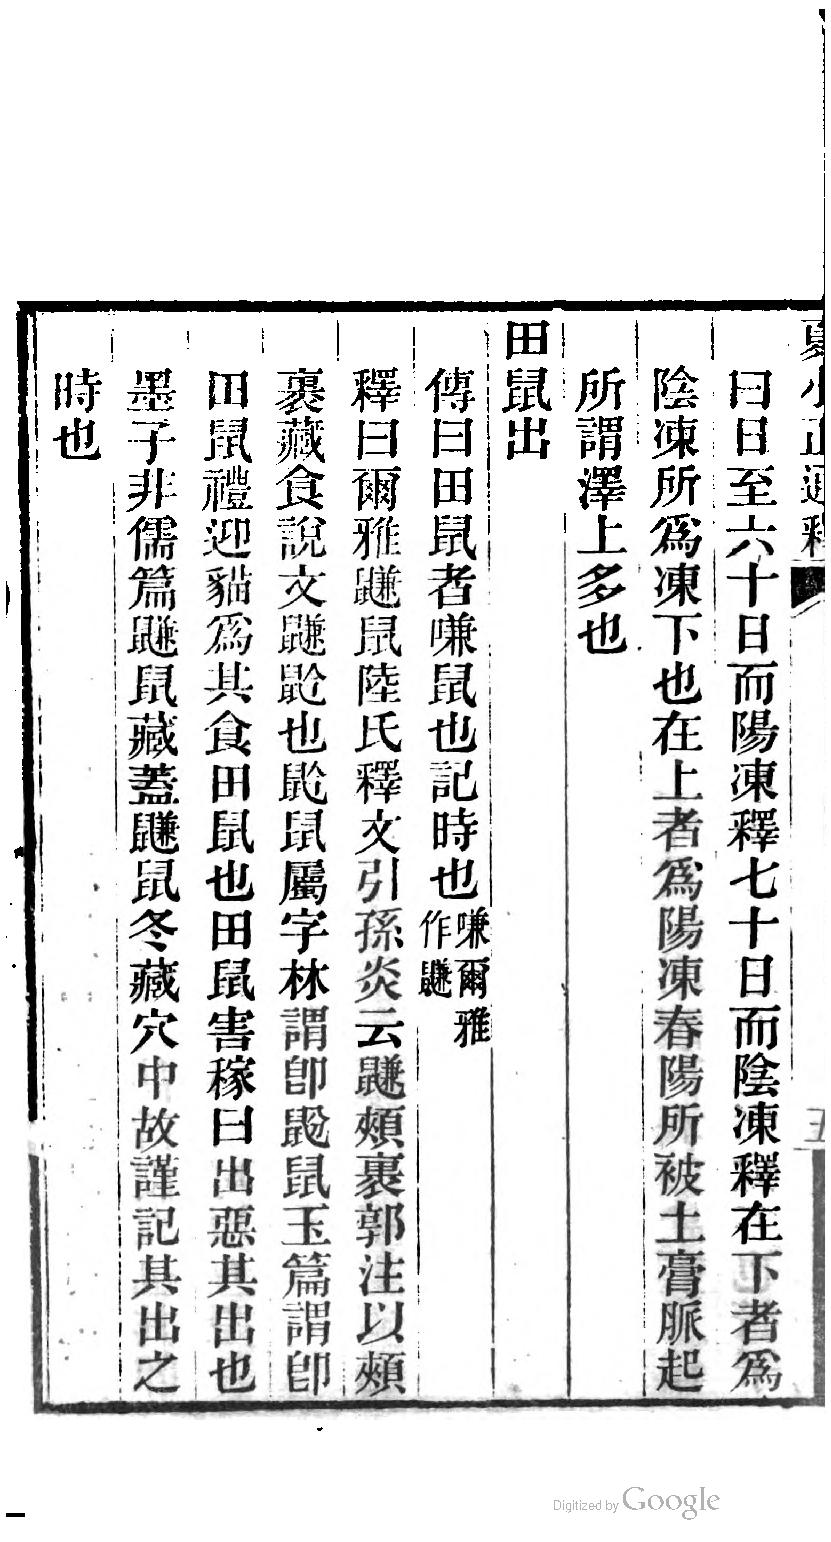 夏小正通釋
曰日至六十日而陽凍釋七十日而陰凍釋在下者爲
陰凍所爲凍下也在上者爲陽凍春陽所被土膏脈起
所謂澤上多也
田鼠出
傳曰田鼠者嗛鼠也記時也嗛爾雅
作鼸
釋曰爾雅鼸鼠陸氏釋文引孫炎云鼸頰裹郭注以頰
裹藏食說文鼸䶃也䶃鼠屬字林謂卽鼠玉篇謂卽
田鼠禮迎貓爲其食田鼠也田鼠害稼曰出惡其出也
墨子非儒篇鼸鼠藏蓋鼸鼠冬藏穴中故謹記其出之
時也
Digitized by Google